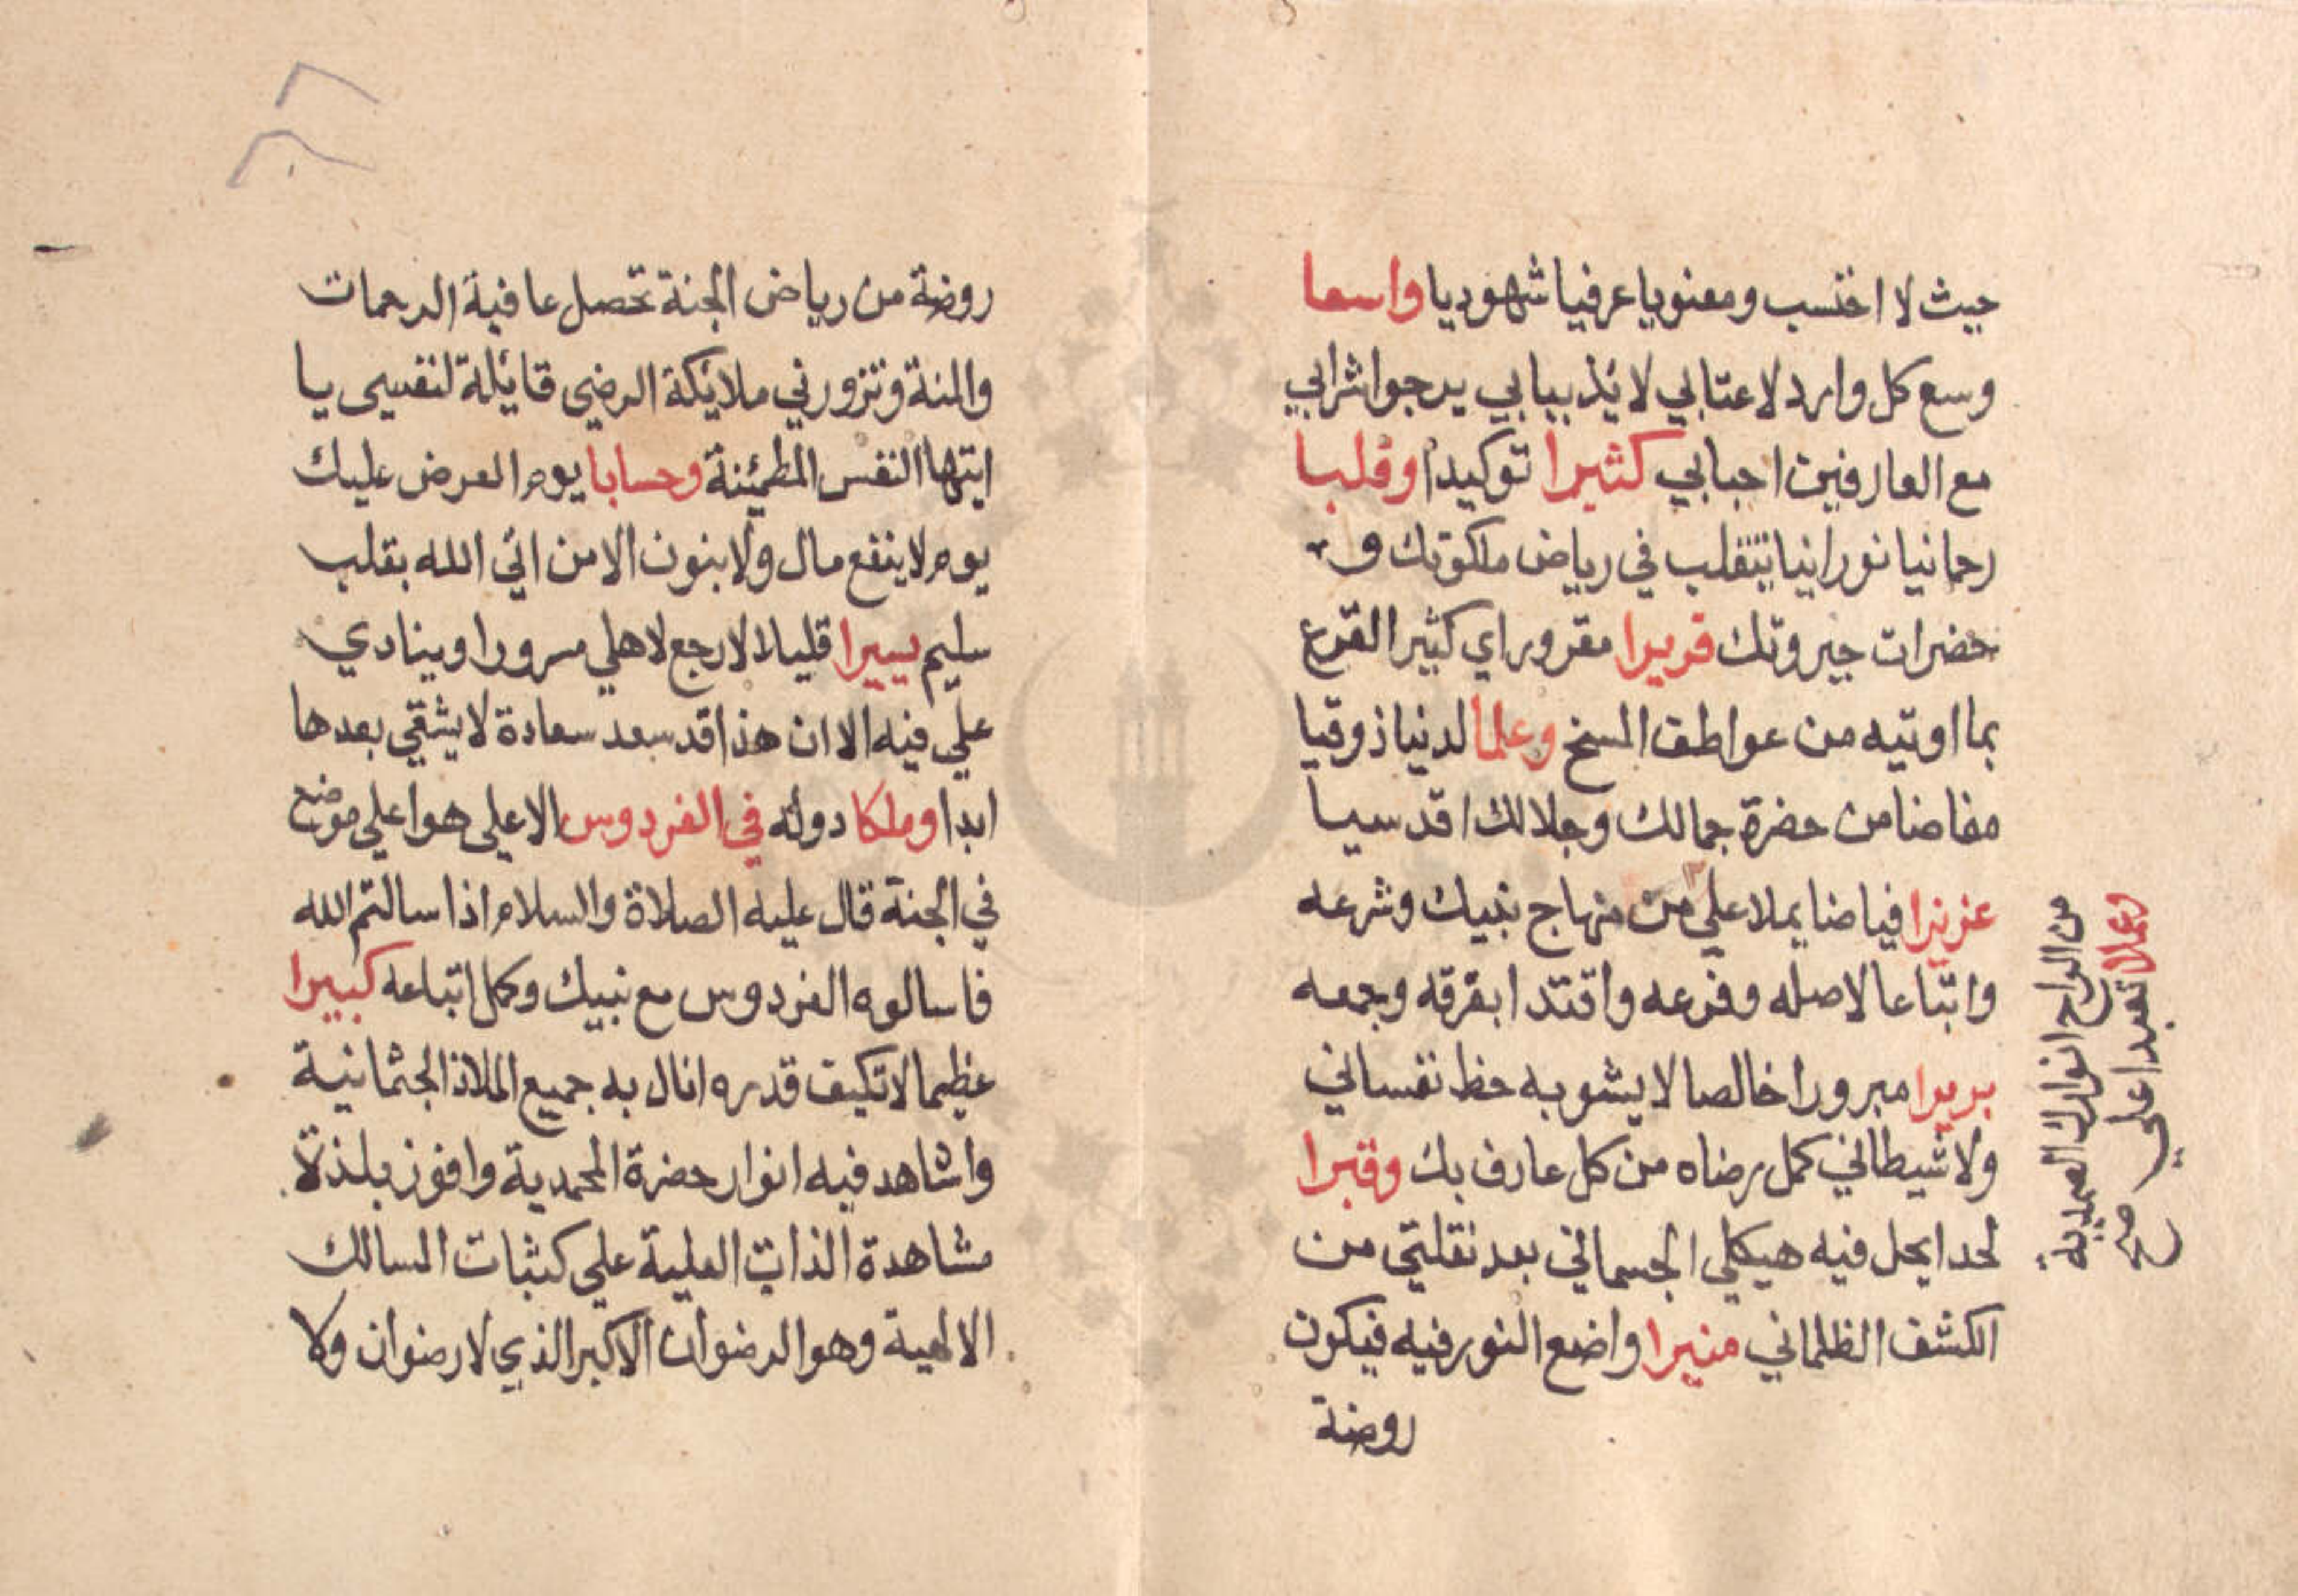 حيث لا احتسب ومعنويا عرفيا شهوديا واسعا
وسع كل وارد لاعتابي لائذ ببابي يرجوا شرابي
مع العارفين احبابي كثيرا توكيدا وقلبا
رحمانيا نورانيا يتقلب في رياض ملكوتك و
حضرات جبروتك قريرا مقرور اي كثير القرع
بما اوتيه من عواطف المنح وعلما لدنيا ذوقيا
مفاضا من حضرة جمالك وجلالك اقدسيا
عزيزا فياضا يملا علي من منهاج نبيك وشرعه
واتباعا لاصله وفرعه واقتدا بفرقه وجمعه
بريرا مبرورا خالصا لا يشوبه حظ نفساني
ولا شيطاني كمل رضاه من كل عارف بك وقبرا
لحدا يحل فيه هيكلي الجسماني بعد نقلتي من
الكشف الظلماني منيرا واضع النور فيه فيكون
روضة
من الواح انوارك الصمدية
وعملا تعبدا علي
صح
روضة من رياض الجنة تحصل عافية الرحمات
والمنة وتزورني ملائكة الرضي قائلة لنفسي يا
ايتها النفس المطمئنة وحسابا يوم العرض عليك
يوم لا ينفع مال ولا بنون الا من اتي الله بقلب
سليم يسيرا قليلا لارجع لاهلي مسرورا وينادي
علي فيه الا ان هذا قد سعد سعادة لا يشقي بعدها
ابدا وملكا دولة في الفردوس الاعلي هو اعلي موضع
في الجنة قال عليه الصلاة والسلام اذا سالتم الله
فاسالوه الفردوس مع نبيك وكمل اتباعه كبيرا
عظيما لا تكيف قدره انال به جميع الملاذ الجثمانية
واشاهد فيه انوار حضرة المحمدية وافوز بلذة
مشاهدة الذات العلية علي كثبات المسالك
الالهية وهو الرضوان الاكبر الذي لا رضوان ولا